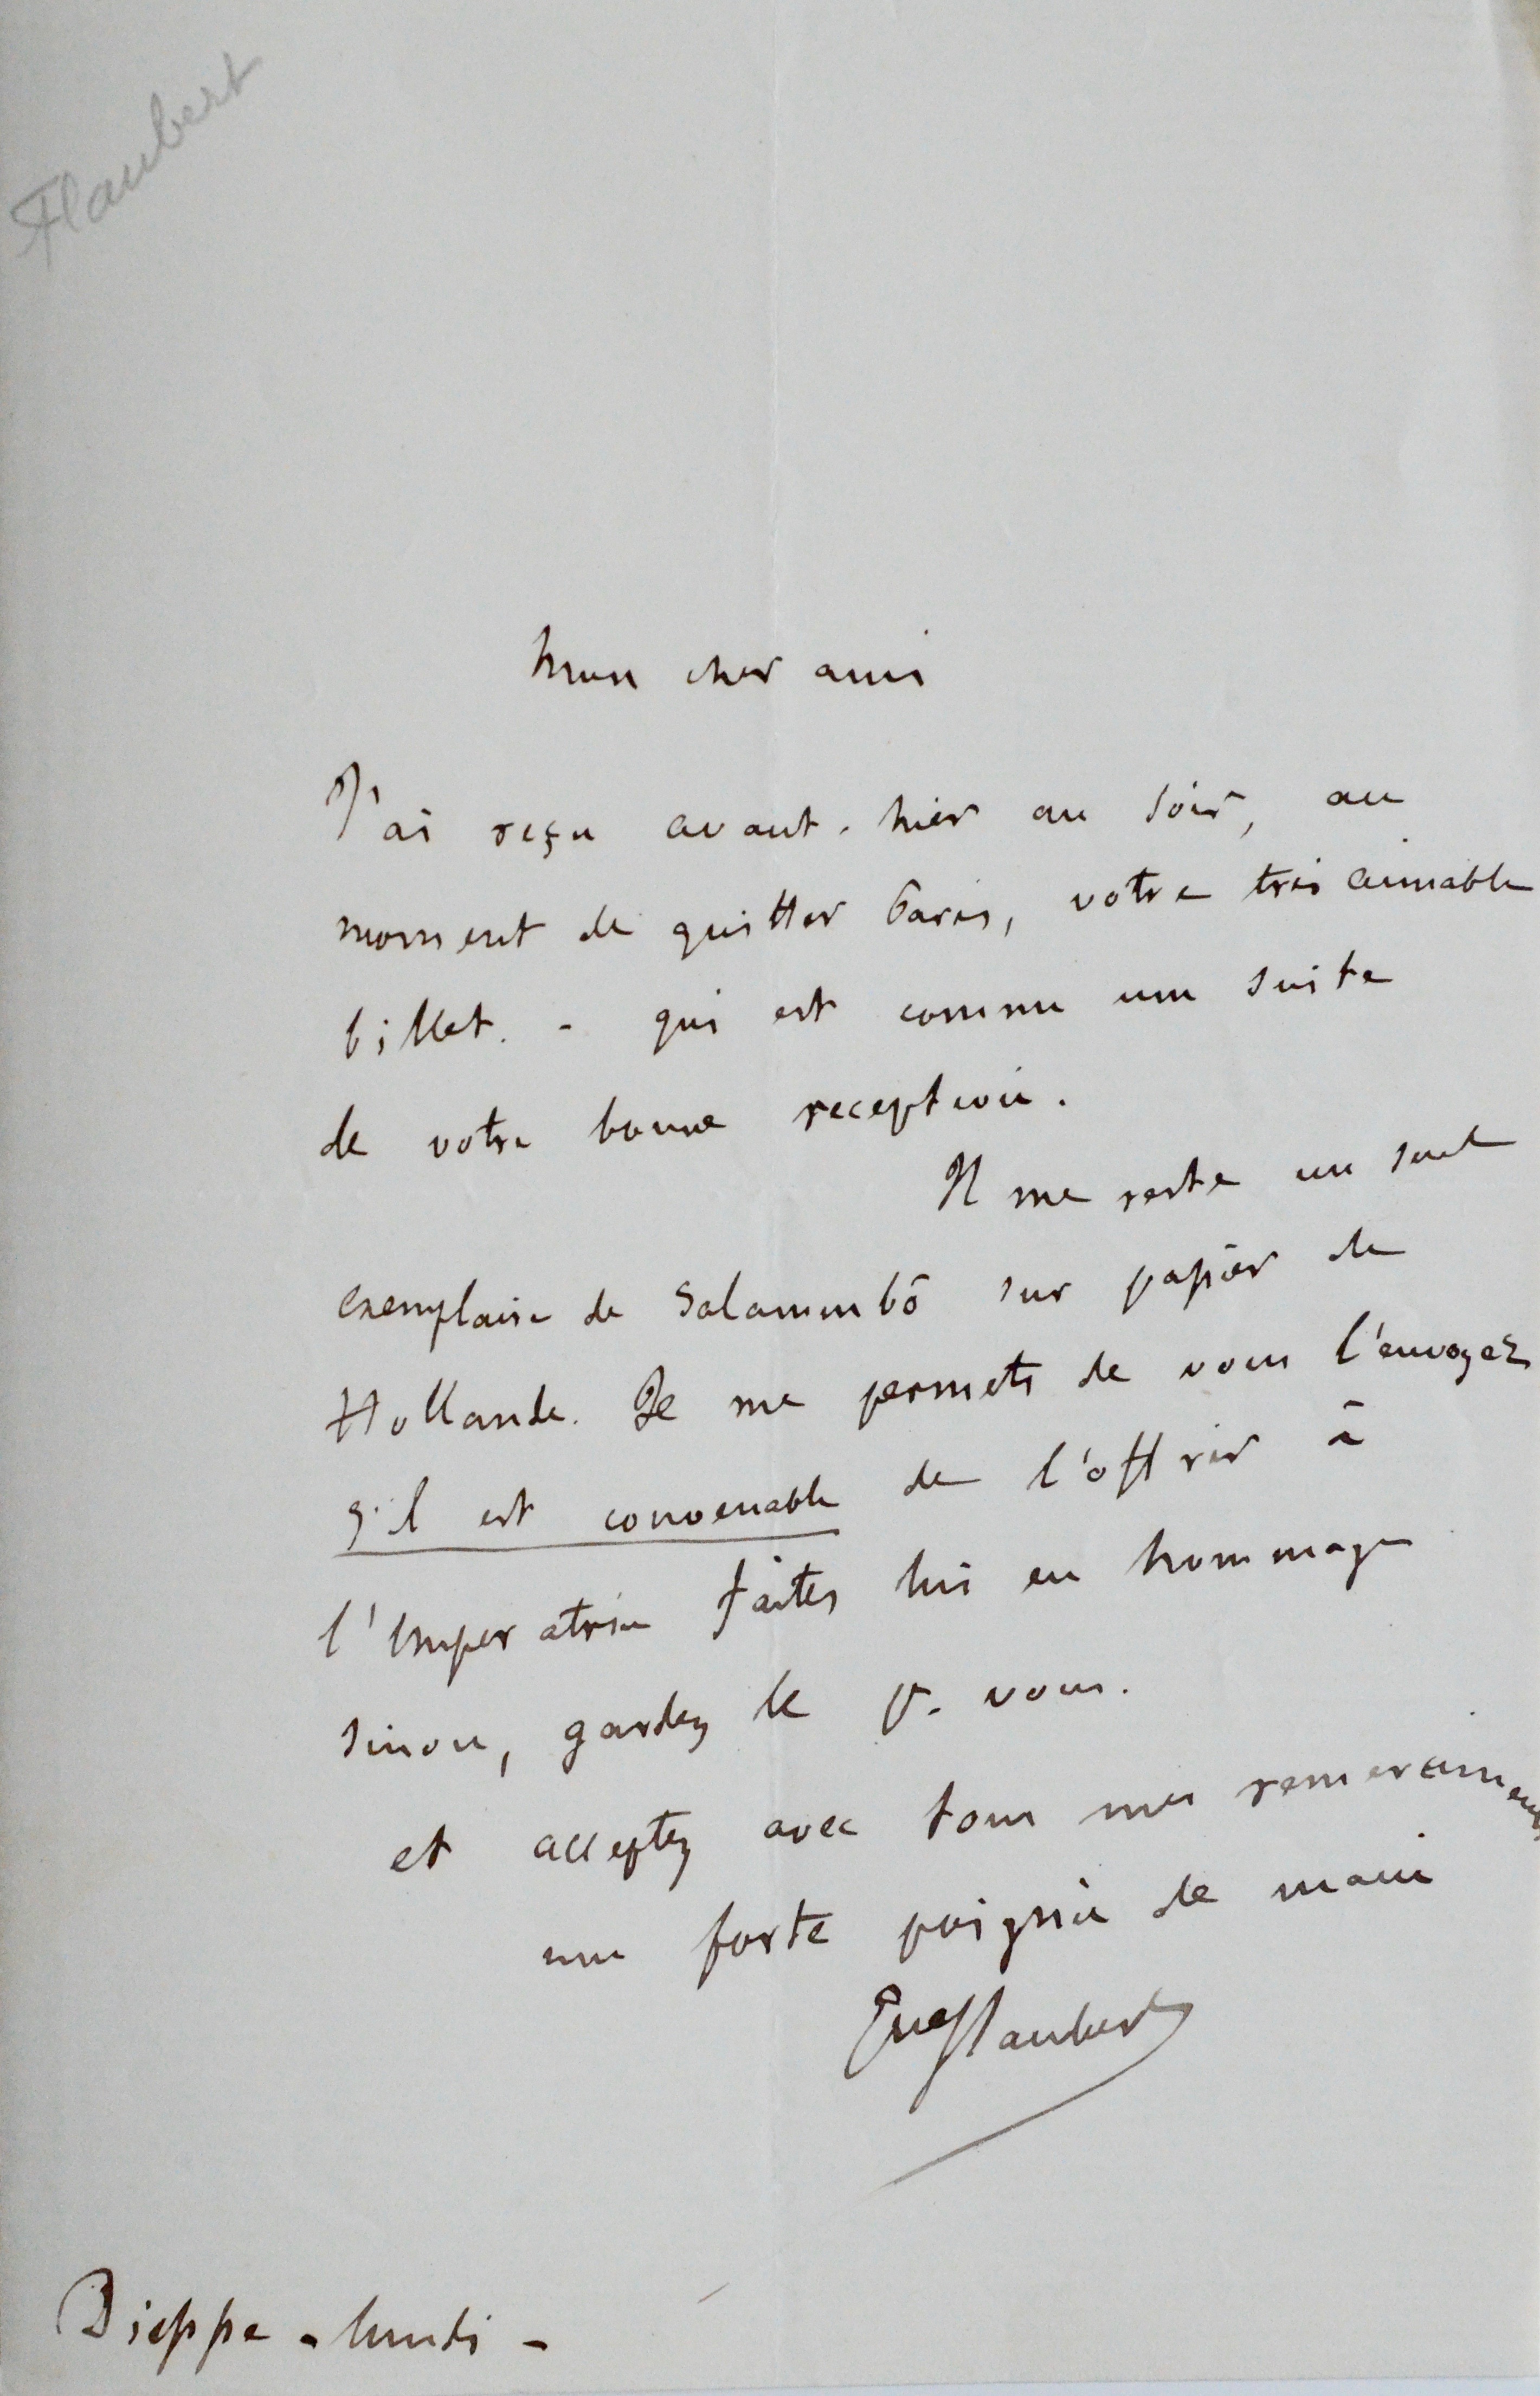 Flaubert
Mon cher ami
J'ai reçu avant-hier au soir, au
moment de quitter Paris, votre très aimable
billet. - qui est comme une suite
de votre bonne reception.
Il me reste un seul
exemplaire de Salammbô sur papier de
Hollande. Je me permets de vous l'envoyer
s'il est convenable de l'offrir à
l'Imperatrice faites lui en hommage
sinon, gardez le p. vous.
et acceptez avec tous mes remerciments
une forte poignée de main
Gve Flaubert
Dieppe - lundi -